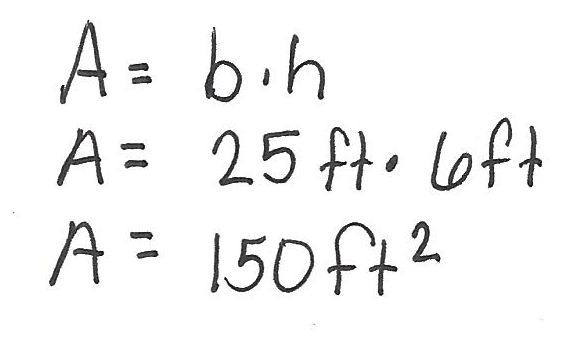 A = b·h
A = 25 ft · 6 ft
A = 150 ft²